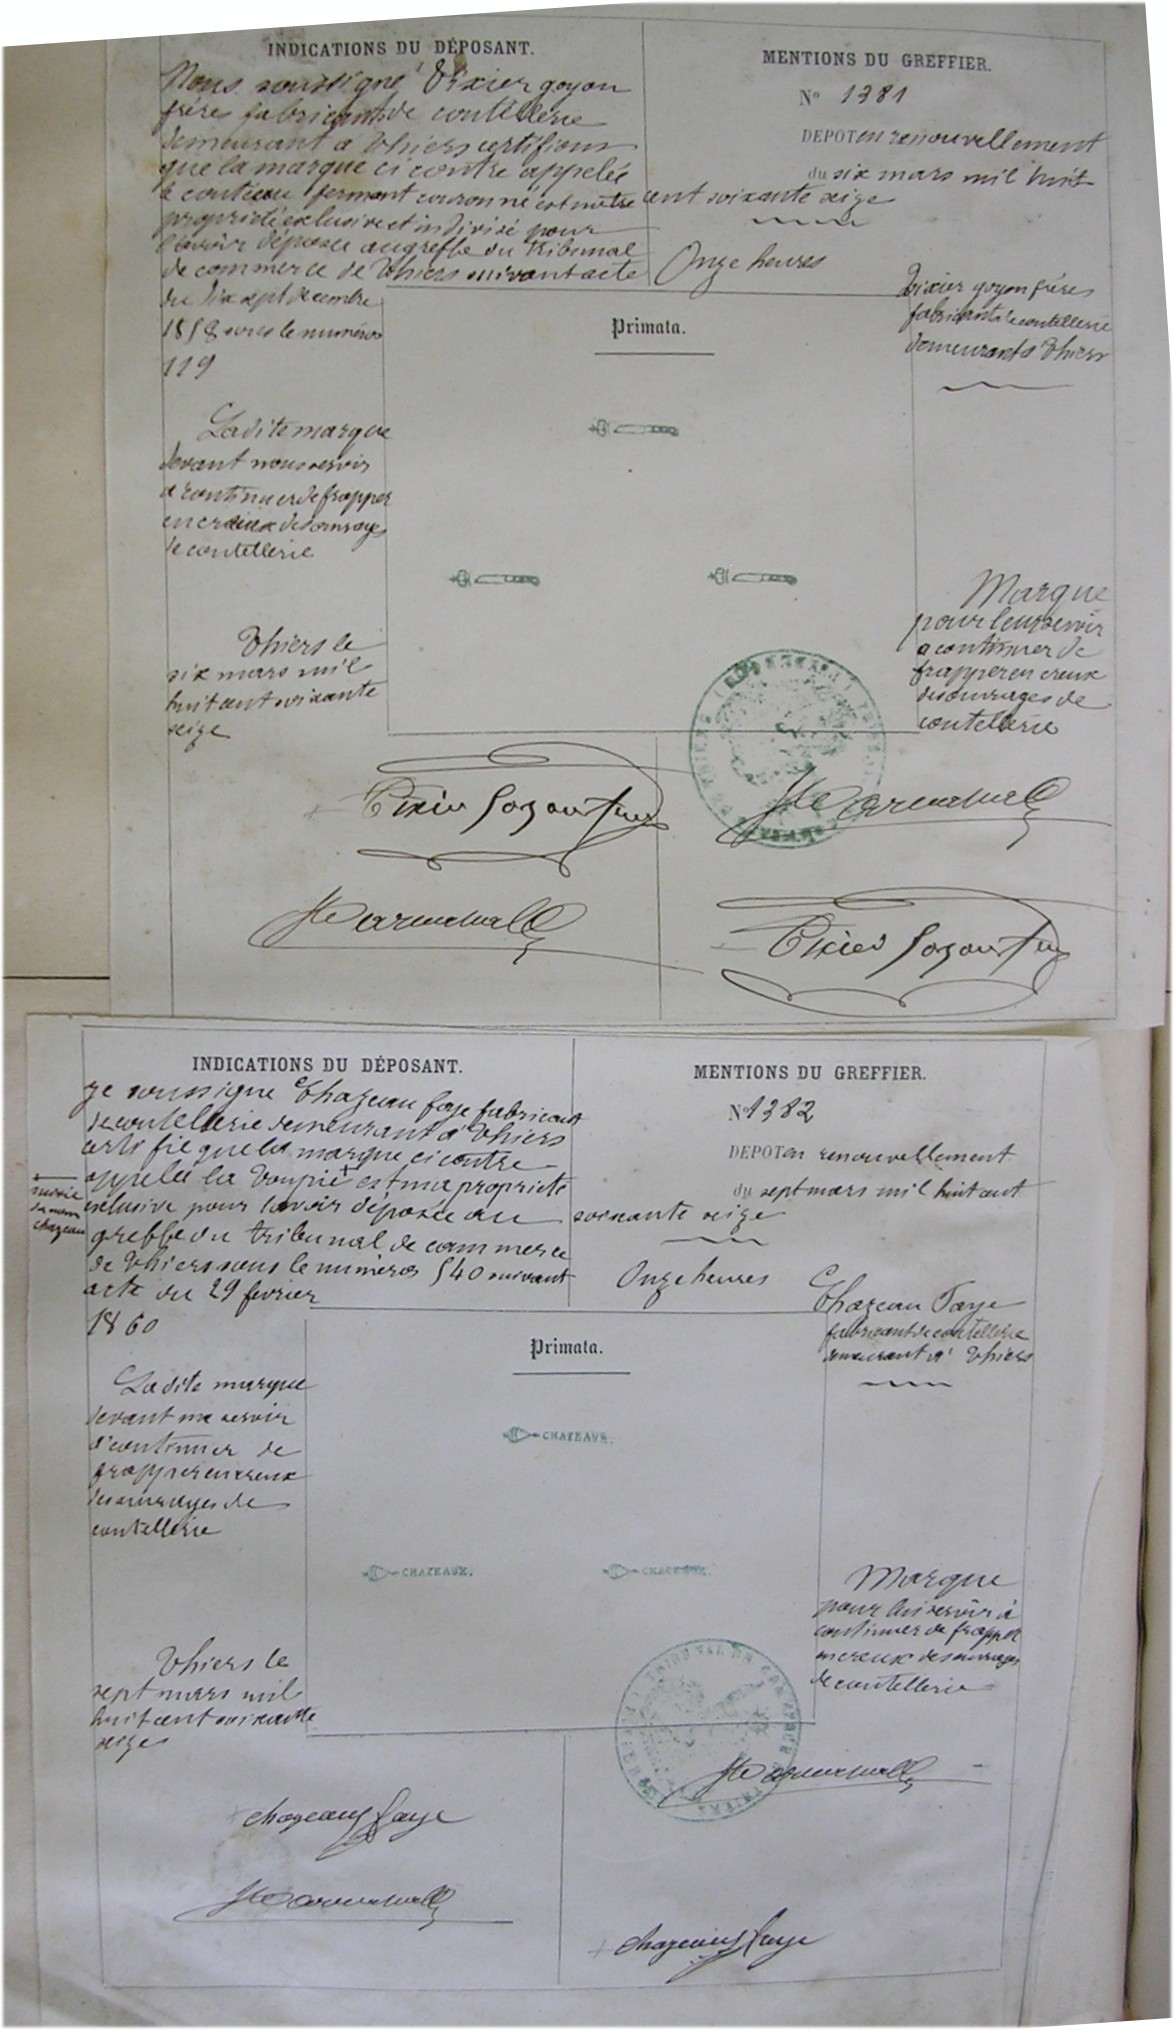 INDICATIONS DU DÉPOSANT.
Nous soussigné Tixier goyon
frères fabricants de coutellerie
demeurant à Thiers certifions
que la marque ci contre appelée
le couteau fermant couronné est notre
propriété exclusive et indivise pour
l'avoir déposée au greffe du Tribunal
de commerce de Thiers suivant acte
du dix sept decembre
1858 sous le numéros
119
La dite marque
devant nous servir
a continuer de frapper
en creux des ouvrages
de coutellerie
Thiers le
six mars mil
huit cent soixante
seize
MENTIONS DU GREFFIER.
No 1381
DEPOT en renouvellement
du six mars mil huit
cent soixante seize
Onze heures
Tixier goyon frères
fabricants de coutellerie
demeurant à Thiers
Primata.
Marque
pour leur servir
a continuer de
frapper en creux
des ouvrages de
coutellerie
Tixier Goyon frères
Tixier Goyon frères
INDICATIONS DU DÉPOSANT.
Je soussigne Chazeau faye fabricant
de coutellerie demeurant à Thiers
certifie que la marque ci contre
appelée la Toupie + est ma propriete
exclusive pour lavoir déposée au
greffe du tribunal de commerce
de Thiers sous le numéros 540 suivant
acte du 29 fevrier
1860
+
suivie
du nom
chazeau
La dite marque
devant me servir
a continuer de
frapper en creux
des ouvrages de
coutellerie
Thiers le
sept mars mil
huit cent soixante
seize
MENTIONS DU GREFFIER.
No 1382
DEPOT en renouvellement
du sept mars mil huit cent
soixante seize
Onze heures
Chazeau Faye
fabricant de coutellerie
demeurant à Thiers
Primata.
CHAZEAUX.
CHAZEAUX.
CHAZEAUX.
Marque
pour lui servir à
continuer de frapper
en creux des ouvrages
de coutellerie
TRIBUNAL DE COMMERCE
THIERS
chazeaux faye
chazeaux faye